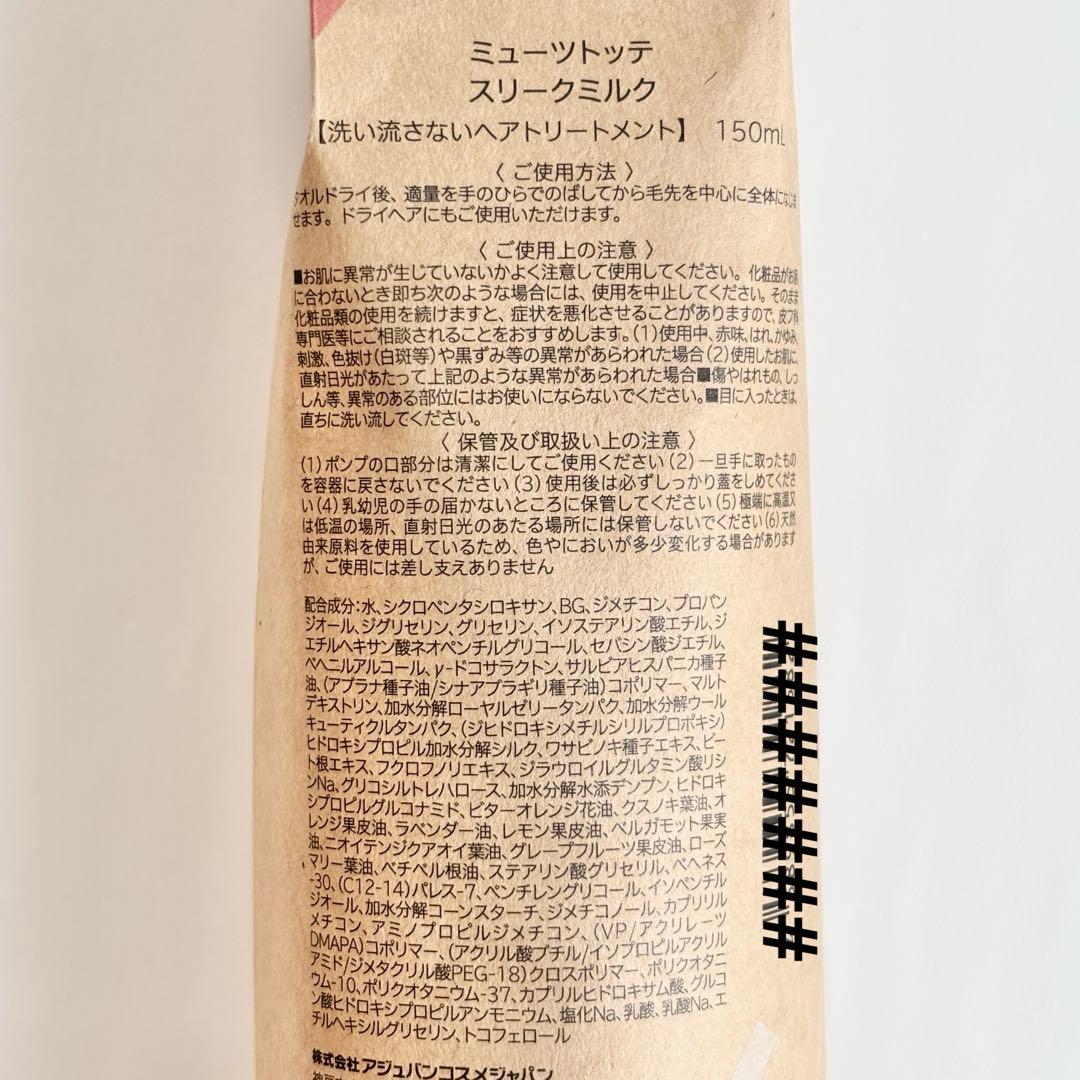 ミューツトッテ
スリークミルク
【洗い流さないヘアトリートメント】 150mL
〈 ご使用方法 〉
タオルドライ後、適量を手のひらでのばしてから毛先を中心に全体になじま
せます。ドライヘアにもご使用いただけます。
〈 ご使用上の注意 〉
■お肌に異常が生じていないかよく注意して使用してください。化粧品がお肌
に合わないとき即ち次のような場合には、使用を中止してください。そのまま
化粧品類の使用を続けますと、症状を悪化させることがありますので、皮フ科
専門医等にご相談されることをおすすめします。(1)使用中、赤味、はれ、かゆみ、
刺激、色抜け(白斑等)や黒ずみ等の異常があらわれた場合(2)使用したお肌に、
直射日光があたって上記のような異常があらわれた場合■傷やはれもの、しっ
しん等、異常のある部位にはお使いにならないでください。■目に入ったときは、
直ちに洗い流してください。
〈 保管及び取扱い上の注意 〉
(1)ポンプの口部分は清潔にしてご使用ください(2)一旦手に取ったもの
を容器に戻さないでください(3)使用後は必ずしっかり蓋をしめてくださ
い(4)乳幼児の手の届かないところに保管してください(5)極端に高温又
は低温の場所、直射日光のあたる場所には保管しないでください(6)天然
由来原料を使用しているため、色やにおいが多少変化する場合があります
が、ご使用には差し支えありません
配合成分:水、シクロペンタシロキサン、BG、ジメチコン、プロパン
ジオール、ジグリセリン、グリセリン、イソステアリン酸エチル、ジ
エチルヘキサン酸ネオペンチルグリコール、セバシン酸ジエチル、
ベヘニルアルコール、γ-ドコサラクトン、サルビアヒスパニカ種子
油、(アブラナ種子油/シナアブラギリ種子油)コポリマー、マルト
デキストリン、加水分解ローヤルゼリータンパク、加水分解ウール
キューティクルタンパク、(ジヒドロキシメチルシリルプロポキシ)
ヒドロキシプロピル加水分解シルク、ワサビノキ種子エキス、ビー
ト根エキス、フクロフノリエキス、ジラウロイルグルタミン酸リシ
ンNa、グリコシルトレハロース、加水分解水添デンプン、ヒドロキ
シプロピルグルコナミド、ビターオレンジ花油、クスノキ葉油、オ
レンジ果皮油、ラベンダー油、レモン果皮油、ベルガモット果実
油、ニオイテンジクアオイ葉油、グレープフルーツ果皮油、ローズ
マリー葉油、ベチベル根油、ステアリン酸グリセリル、ベヘネス
-30、(C12-14)パレス-7、ペンチレングリコール、イソペンチル
ジオール、加水分解コーンスターチ、ジメチコノール、カプリリル
メチコン、アミノプロピルジメチコン、(VP/アクリレーツ
DMAPA)コポリマー、(アクリル酸ブチル/イソプロピルアクリル
アミド/ジメタクリル酸PEG-18)クロスポリマー、ポリクオタニ
ウム-10、ポリクオタニウム-37、カプリルヒドロキサム酸、グルコ
ン酸ヒドロキシプロピルアンモニウム、塩化Na、乳酸、乳酸Na、エ
チルヘキシルグリセリン、トコフェロール
株式会社アジュバンコスメジャパン
########